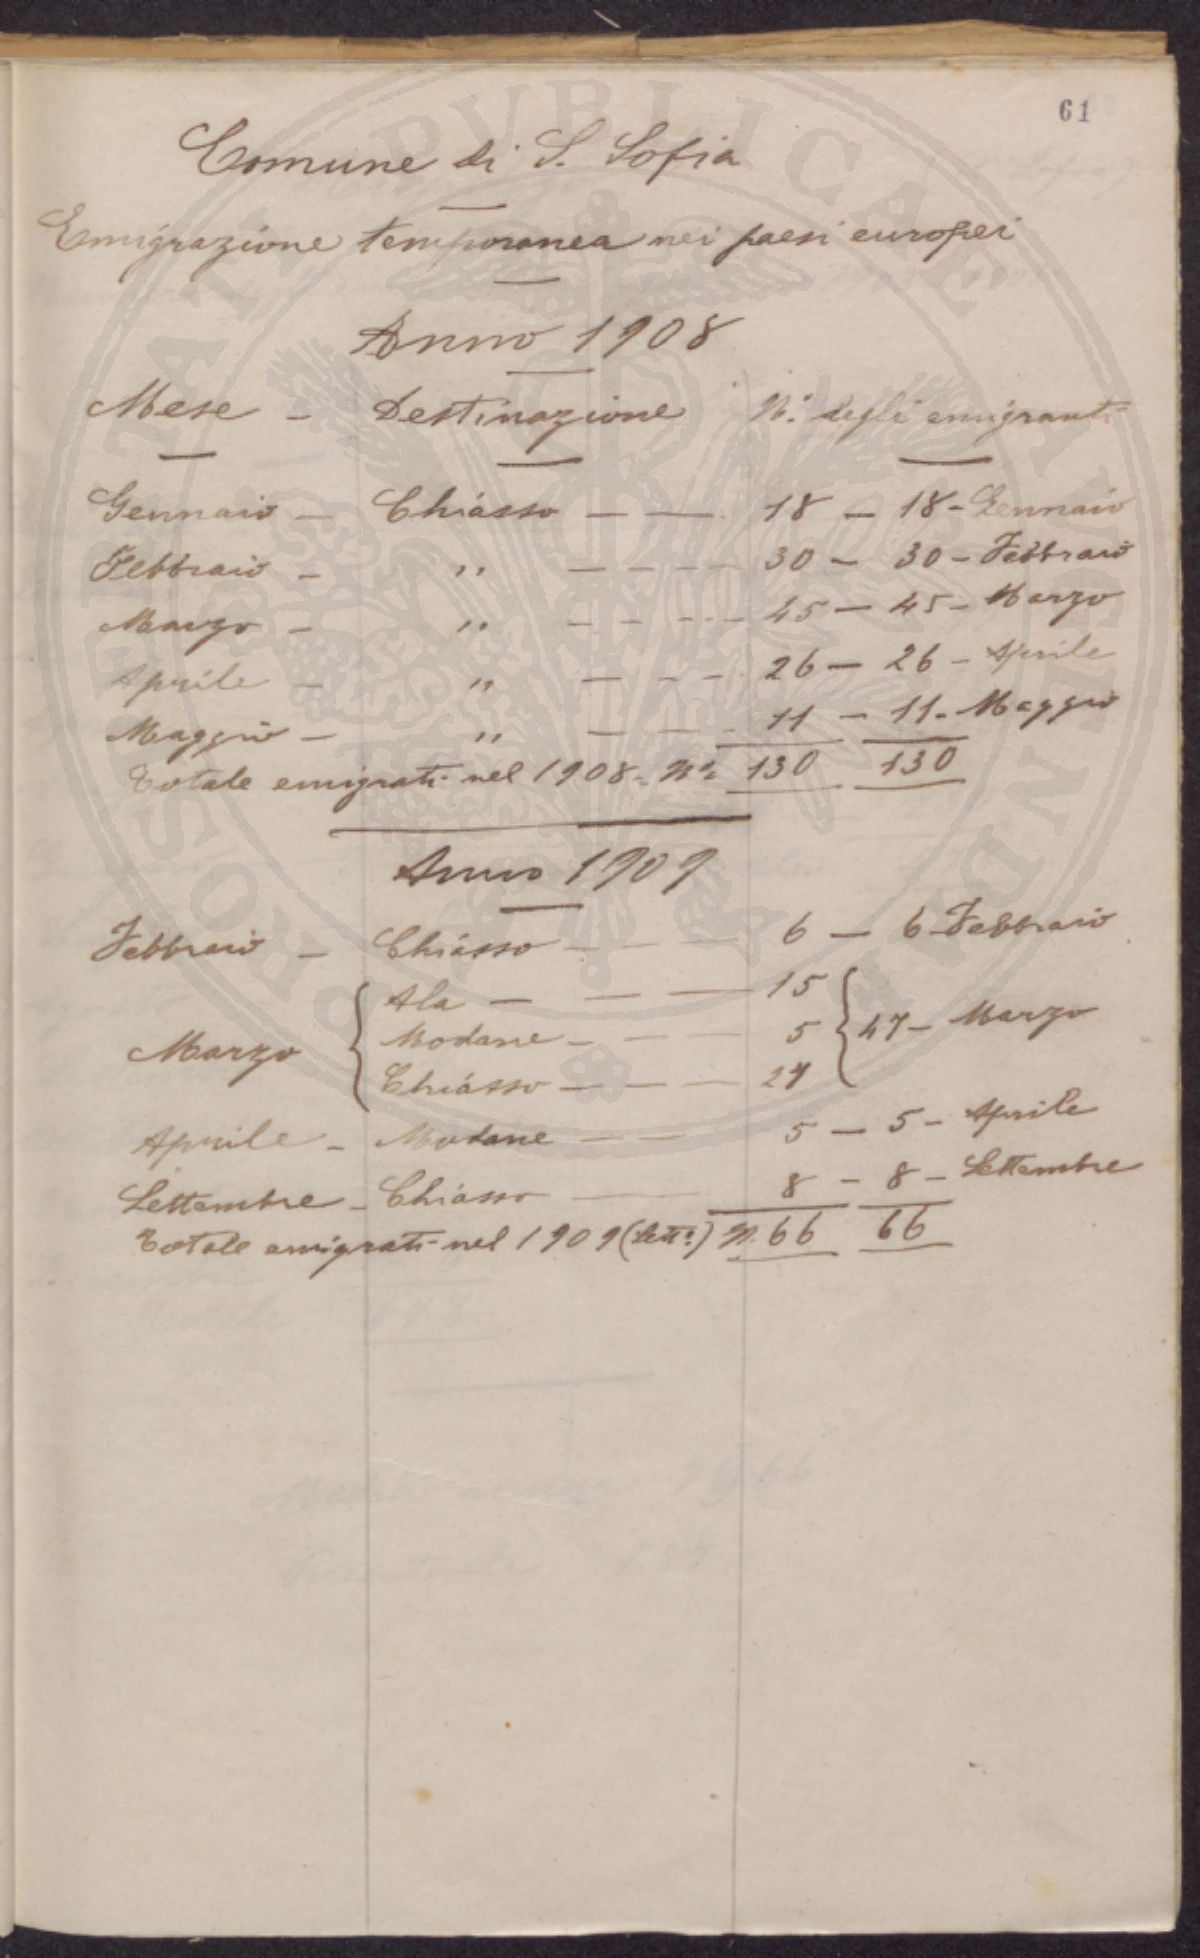 61
Comune di S. Sofia
Emigrazione temporanea nei paesi europei
Anno 1908
Mese - Destinazione N.° degli emigranti
Gennaio - Chiasso - - 18 - 18 - Gennaio
Febbraio - " - - - - 30 - 30 - Febbraio
Marzo - " - - - - - 45 - 45 - Marzo
Aprile - " - - - - 26 - 26 - Aprile
Maggio - " - - - - 11 - 11 - Maggio
Totale emigrati nel 1908 - N.° 130 130
Anno 1909
Febbraio - Chiasso - - - 6 - 6 - Febbraio
Marzo { Ala - - - 15 } 47 - Marzo
Modane - - - 5
Chiasso - - - 27
Aprile - Modane - - 5 - 5 - Aprile
Settembre - Chiasso - 8 - 8 - Settembre
Totale emigrati nel 1909 (Sett.e) N. 66 66
ROSTAT PUBLICAE SVAE GENDAE